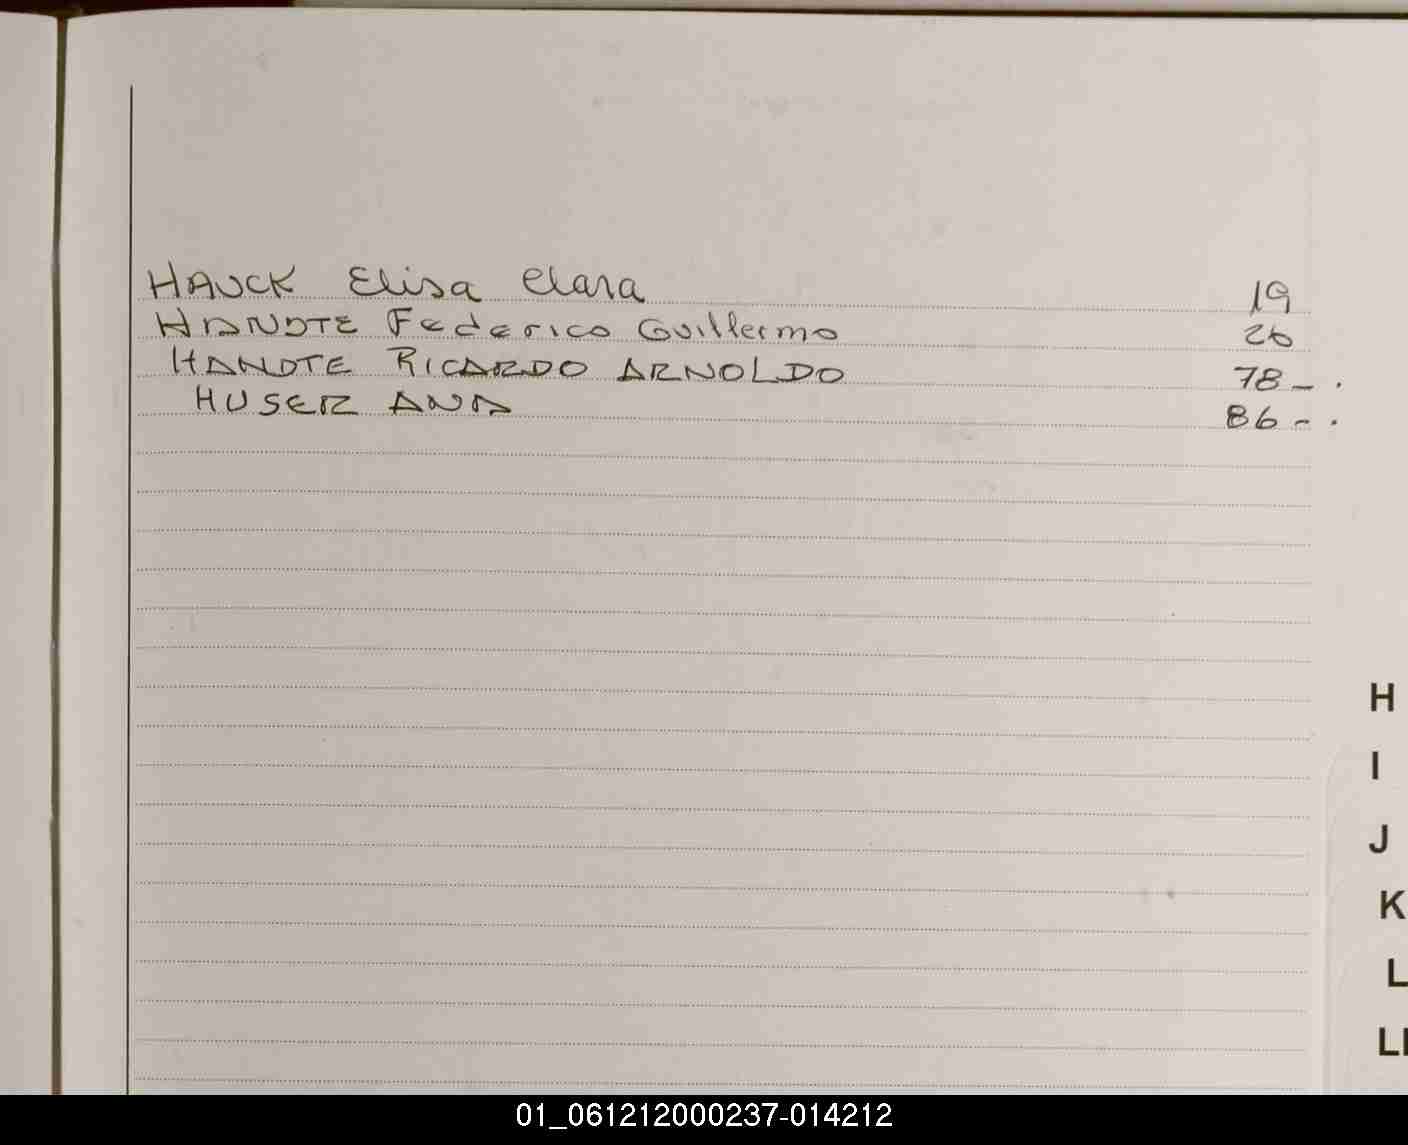 HAUCK Elisa Clara 19
HANDTE Federico Guillermo 26
HANDTE RICARDO ARNOLDO 78 - .
HUSER ANA 86 - .
H
I
J
K
L
LL
01_061212000237-014212